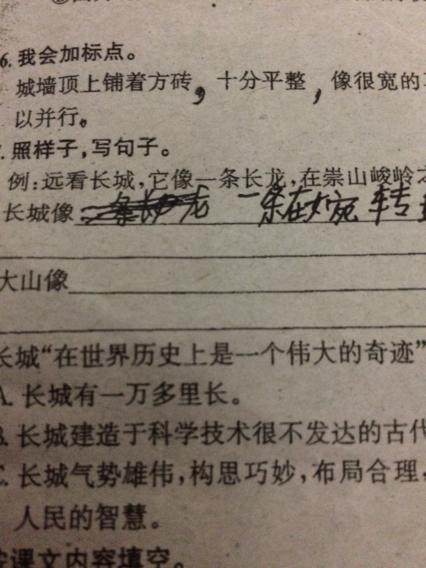 6. 我会加标点。
城墙顶上铺着方砖,十分平整,像很宽的
以并行。
照样子,写句子。
例:远看长城,它像一条长龙,在崇山峻岭
长城像 龙 一条在如宛转
大山像
长城“在世界历史上是一个伟大的奇迹”
A. 长城有一万多里长。
B. 长城建造于科学技术很不发达的古代
C. 长城气势雄伟,构思巧妙,布局合理,
人民的智慧。
按课文内容填空。